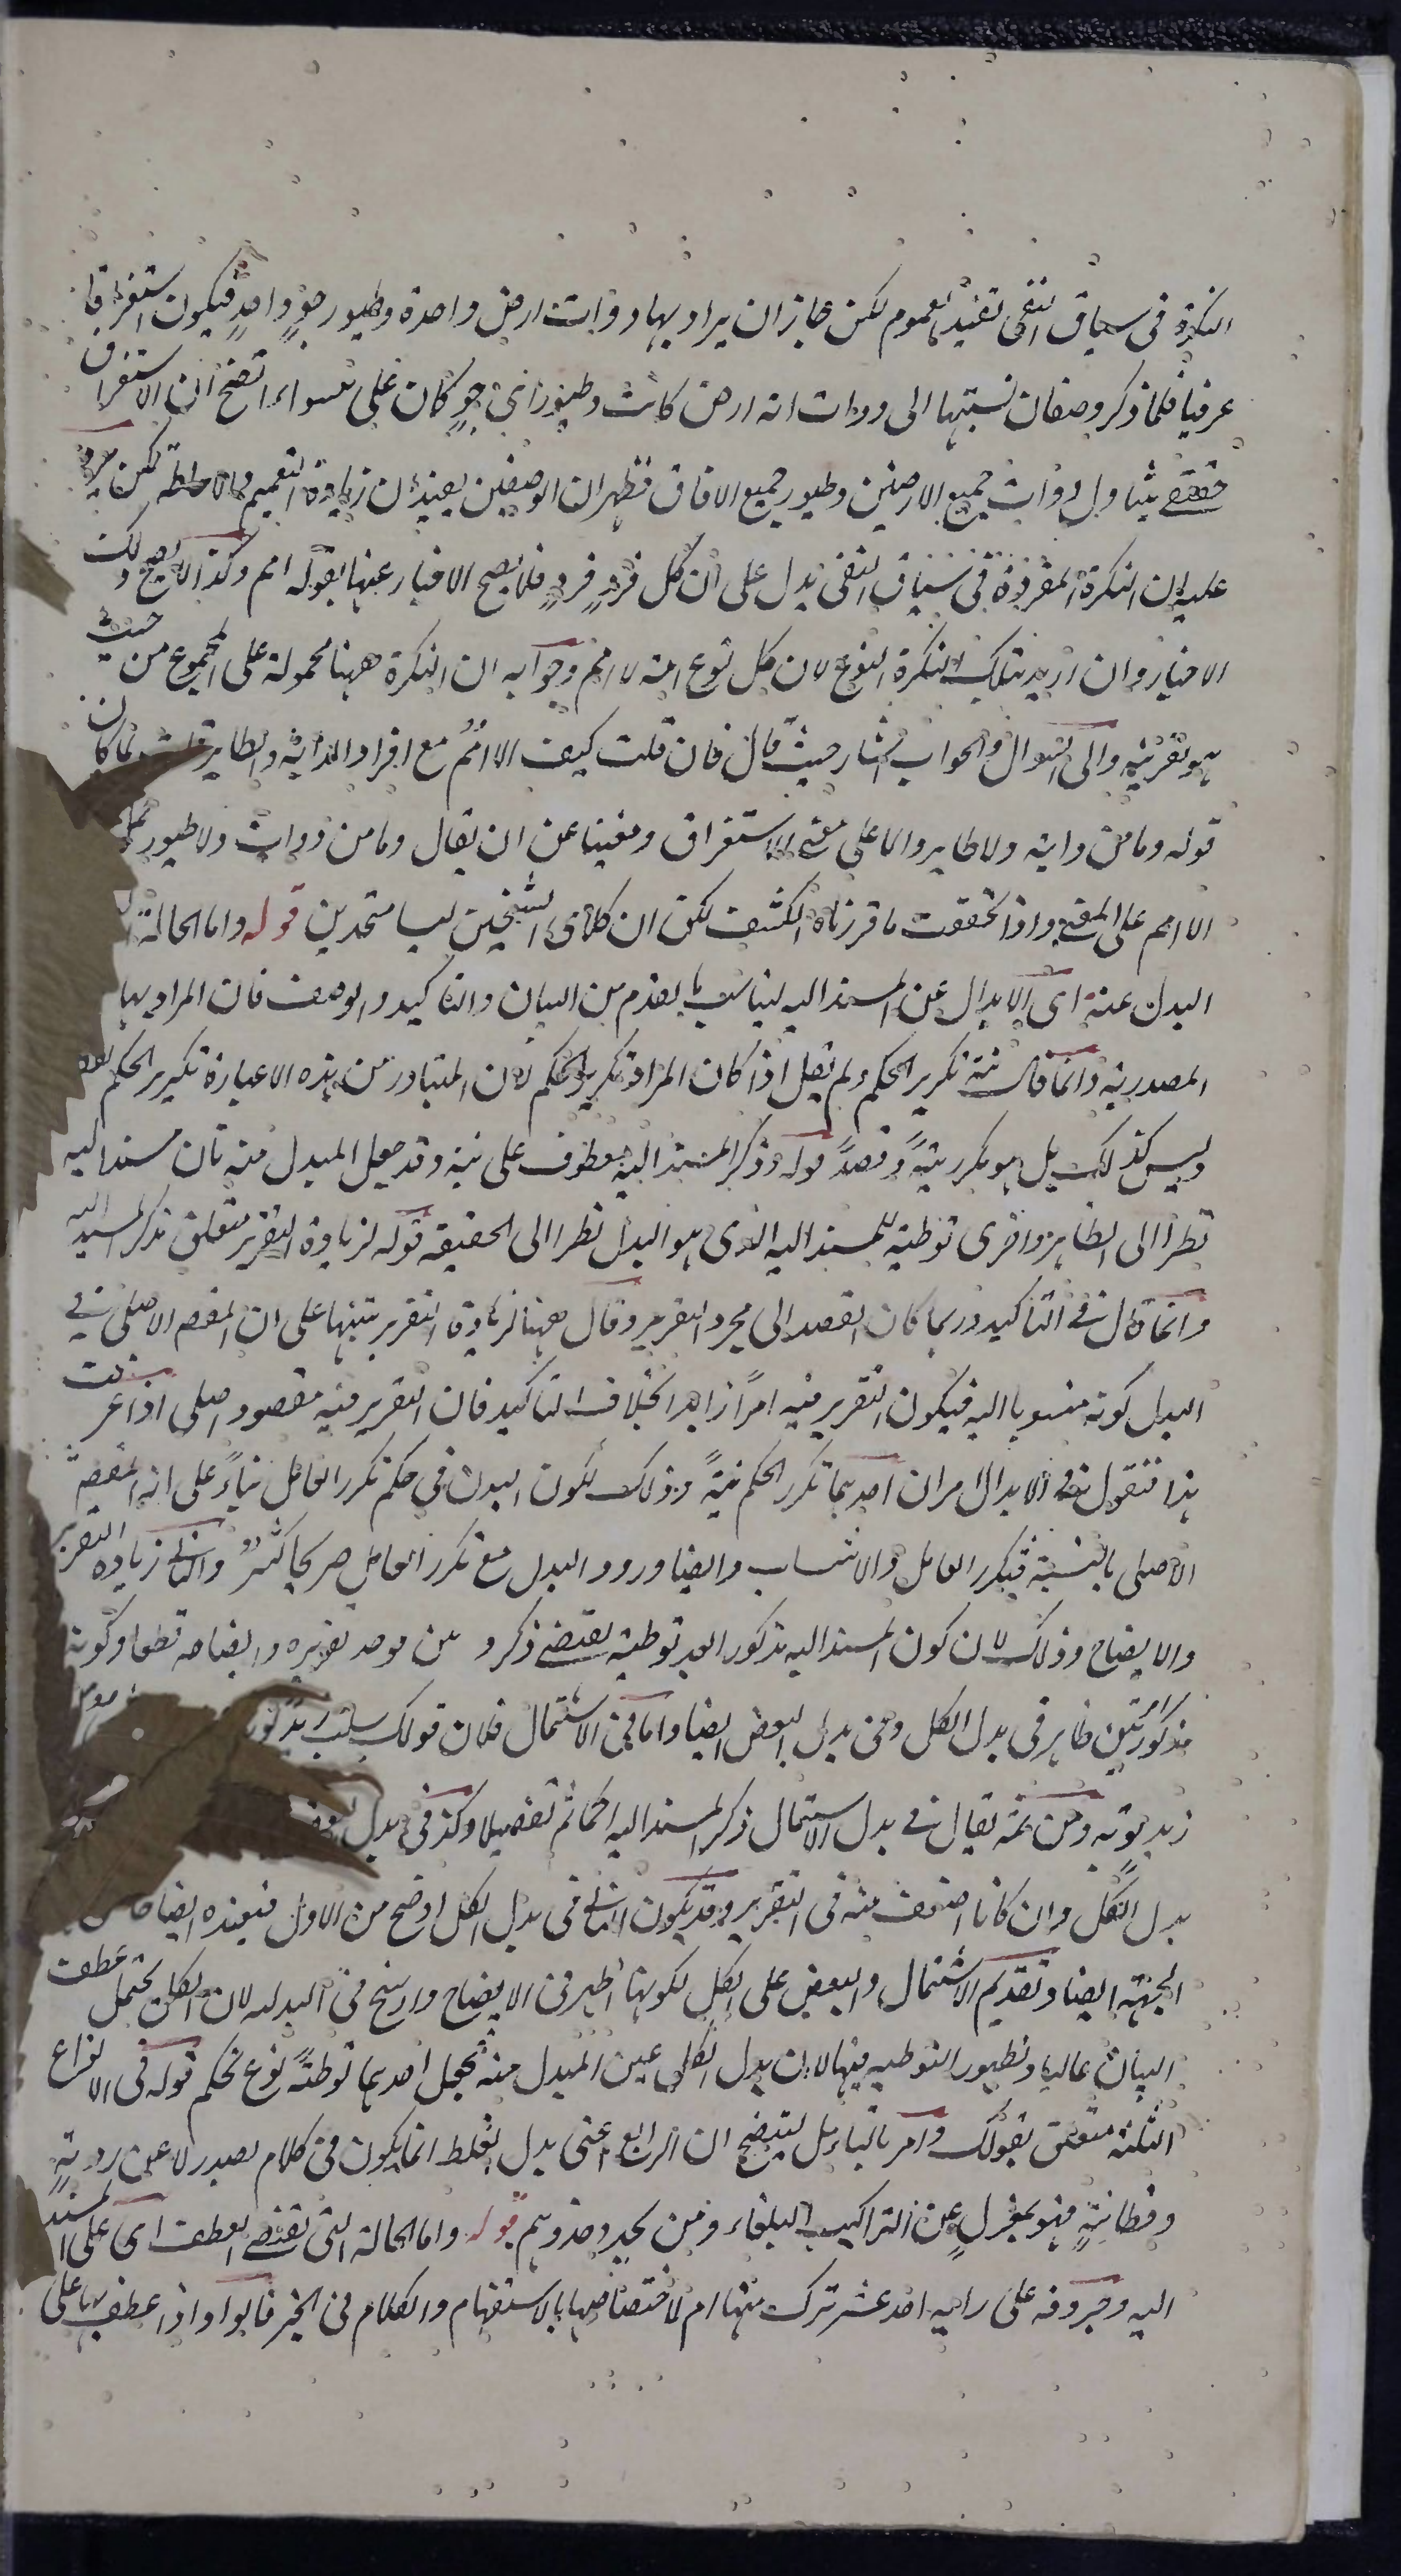 النكرة فى سياق النفى تفيد العموم لكن جاز ان يراد بها دواب ارض واحدة وطيور جوٍ واحدٍ فيكون استغراقا
عرفيا فلما ذكر وصفان نسبتها الى دواب اية ارض كانت وطيور اى جوٍ كان على السواء اتضح ان الاستغراق
حقيقى يتناول دواب جميع الارضين وطيور جميع الافاق فظهر ان الوصفين يفيدان زيادة التعميم والاحاطة لكن يرد
عليه ان النكرة المفردة فى سياق النفى يدل على ان كل فردٍ فردٍ فلا يصح الاخبار عنها بقوله امم وكذا لا يصح ذلك
الاخبار وان اريد بتلك النكرة النوع لان كل نوع امة لا امم وجوابه ان النكرة ههنا محمولة على المجموع من حيث
هو بقرينة والى السوال والجواب اشار حيث قال فان قلت كيف الا امم مع افراد الدابة والطاير قلت لما كان
قوله وما من دابة ولا طاير دالا على معنى الاستغراق ومغنيا عن ان يقال وما من دواب ولا طيور
الا امم على المعنى واذا تحققت ما قررناه انكشف لك ان كلامى الشيخين ليسا متحدين قوله واما الحالة
البدل عنه اى الابدال عن المسند اليه ليناسب ما تقدم من البيان والتاكيد والوصف فان المراد بها
المصدرية وانما قال نية تكرير الحكم ولم يقل اذا كان المراد تكرير الحكم لان المتبادر من هذه العبارة تكرير الحكم
وليس كذلك بل هو مكرر نيةً وقصداً قوله وذكر المسند اليه معطوف على نية وقد جعل المبدل منه تان مسندا اليه
نظرا الى الظاهر واخرى توطئة للمسند اليه الذى هو البدل نظرا الى الحقيقة قوله لزيادة التقرير متعلق بذكر المسند اليه
وانما قال فى التاكيد وربما كان القصد الى مجرد التقرير وقال ههنا لزيادة التقرير تنبيها على ان المقصد الاصلى فى
البدل كونه منسوبا اليه فيكون التقرير فيه امراً زايدا بخلاف التاكيد فان التقرير فيه مقصود اصلى اذا عرفت
هذا فنقول فى الابدال امران احدهما تكرر الحكم نيةً وذلك لكون البدل فى حكم تكرر العامل بناءً على انه المقصد
الاصلى بالنسبة فيكرر العامل والانتساب وايضا ورود البدل مع تكرر العامل صريحا كثير والثانى زيادة التقرير
والايضاح وذلك لان كون المسند اليه مذكورا بعد توطئة يقتضى ذكر من يوجد تقريره وايضاحه قطعا وكونه
مذكورتين ظاهر فى بدل الكل وفى بدل البعض ايضا واما فى الاشتمال فلان قولك سلب زيد ثوبه
زيد ثوبه ومن ثمة يقال فى بدل الاشتمال ذكر المسند اليه اجمالا ثم تفصيلا وكذا فى بدل البعض
بدل الكل وان كانا اضعف منه فى التقرير وقد يكون الثانى فى بدل الكل اوضح من الاول فيفيده ايضاحا من
الجهة ايضا وتقديم الاشتمال والبعض على الكل لكونها اظهر فى الايضاح وارسخ فى البدلية لان الكل يحتمل عطف
البيان غالبا وظهور التوطية فيها لان بدل الكل عين المبدل منه فجعل احدهما توطئةً نوع تحكم قوله فى الانواع
الثلثة متعلق بقولك وامر بالتامل ليتضح ان الرابع اعنى بدل الغلط انما يكون فى كلام يصدر لا عن رويةٍ
وفطانةٍ فهو بمعزلٍ عن التراكيب البلغاء ومن يحدو حذوهم قوله واما الحالة التى تقتضى العطف اى على المسند
اليه وحروفه على رايه احد عشر ترك منها ام لاختصاصها بالاستفهام والكلام فى الخبر قالوا واذا عطف بها على